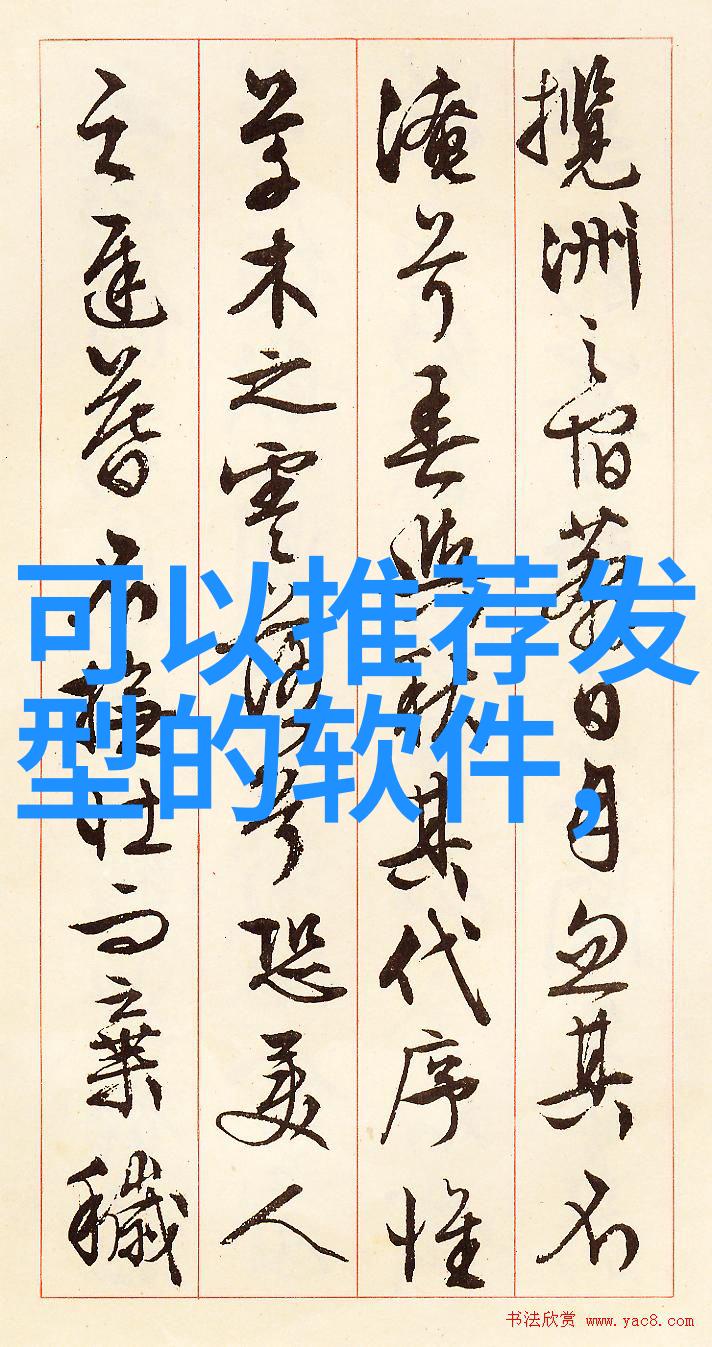 攬洲之宿莽日月忽其不
淹兮春與秋其代序惟
草木之零落兮恐美人
之遲暮不撫壯而棄穢
可以推荐发
型的软件,
书法欣赏 www.yac8.com